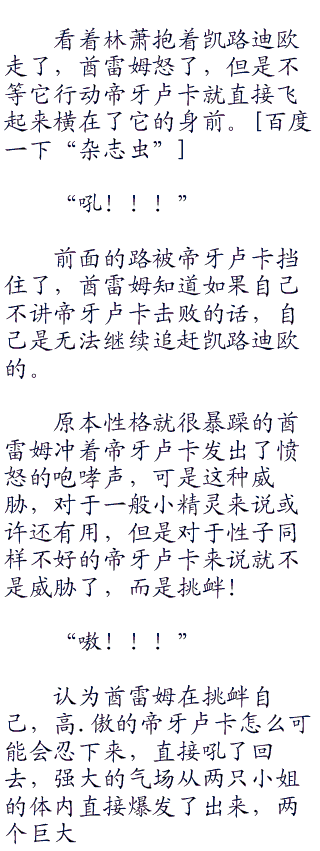 看着林萧抱着凯路迪欧
走了，酋雷姆怒了，但是不
等它行动帝牙卢卡就直接飞
起来横在了它的身前。[百度
一下“杂志虫”]
“吼！！！”
前面的路被帝牙卢卡挡
住了，酋雷姆知道如果自己
不讲帝牙卢卡击败的话，自
己是无法继续追赶凯路迪欧
的。
原本性格就很暴躁的酋
雷姆冲着帝牙卢卡发出了愤
怒的咆哮声，可是这种威
胁，对于一般小精灵来说或
许还有用，但是对于性子同
样不好的帝牙卢卡来说就不
是威胁了，而是挑衅！
“嗷！！！”
认为酋雷姆在挑衅自
己，高.傲的帝牙卢卡怎么可
能会忍下来，直接吼了回
去，强大的气场从两只小姐
的体内直接爆发了出来，两
个巨大